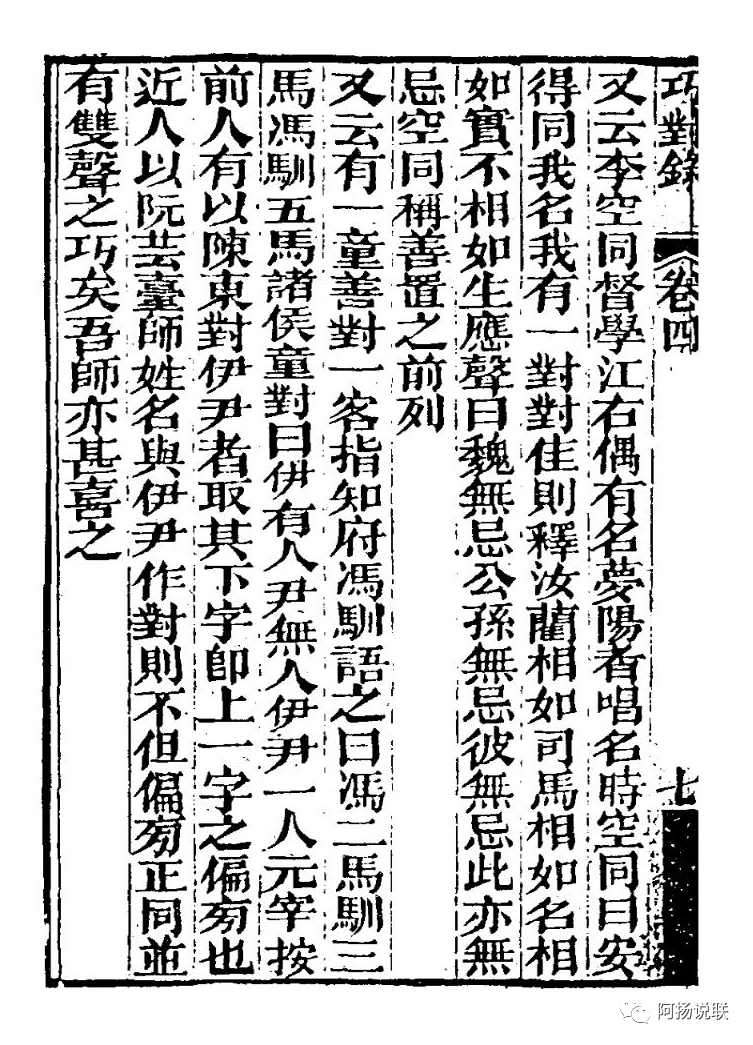 巧對錄
卷四
七
又云李空同督學江右偶有名夢陽者唱名時空同曰安
得同我名我有一對對佳則釋汝藺相如司馬相如名相
如實不相如生應聲曰魏無忌公孫無忌彼無忌此亦無
忌空同稱善置之前列
又云有一童善對一客指知府馮馴語之曰馮二馬馴三
馬馮馴五馬諸侯童對曰伊有人尹無人伊尹一人元宰按
前人有以陳東對伊尹者取其下字卽上一字之偏旁也
近人以阮芸臺師姓名與伊尹作對則不但偏旁正同並
有雙聲之巧矣吾師亦甚喜之
阿扬说联